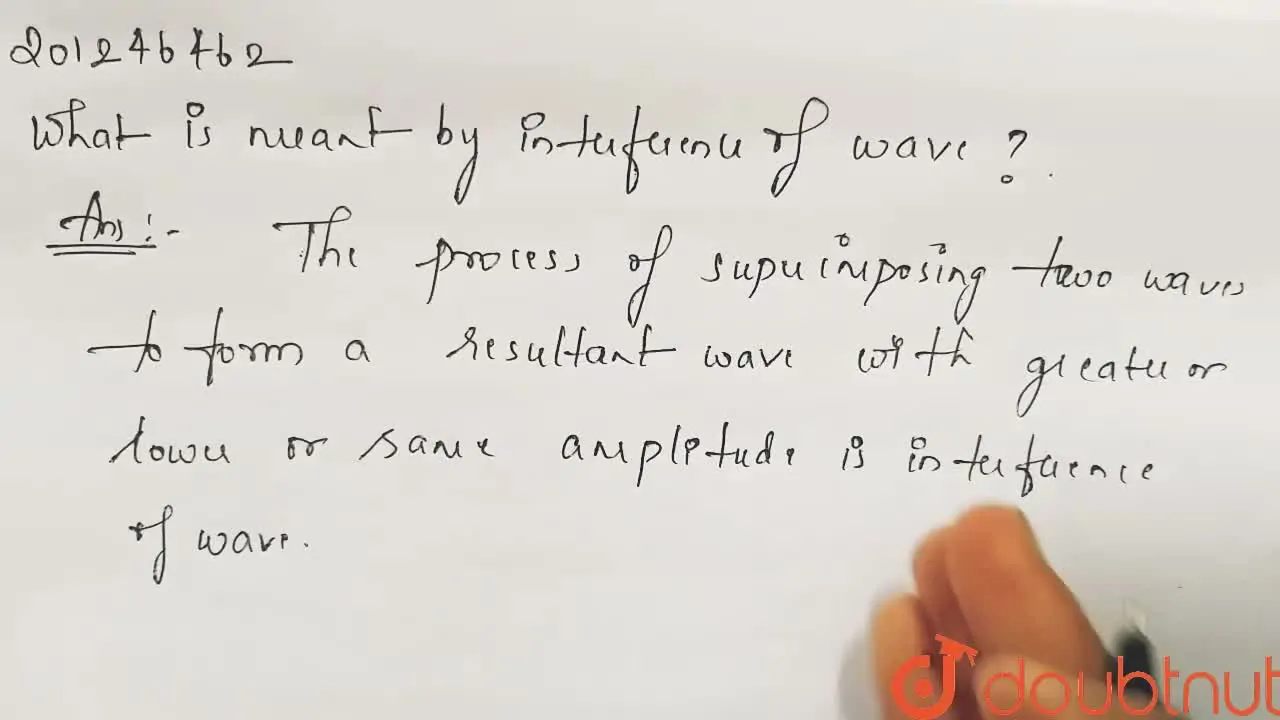 201246462
What is meant by interference of wave?
Ans:- The process of superimposing two waves
to form a resultant wave with greater or
lower or same amplitude is interference
of wave.
doubtnut